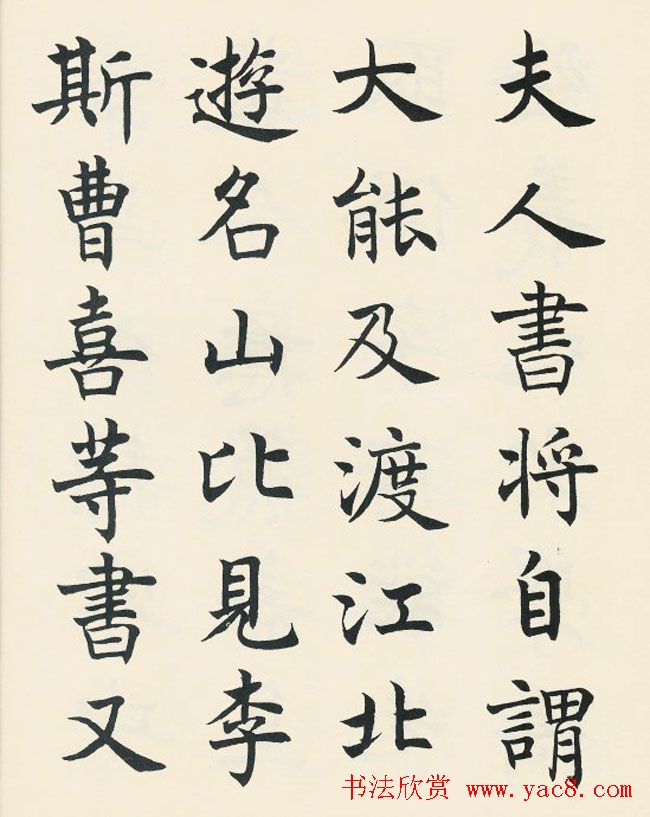 夫人書将自謂
大能及渡江北
遊名山比見李
斯曹喜等書又
书法欣赏 www.yac8.com